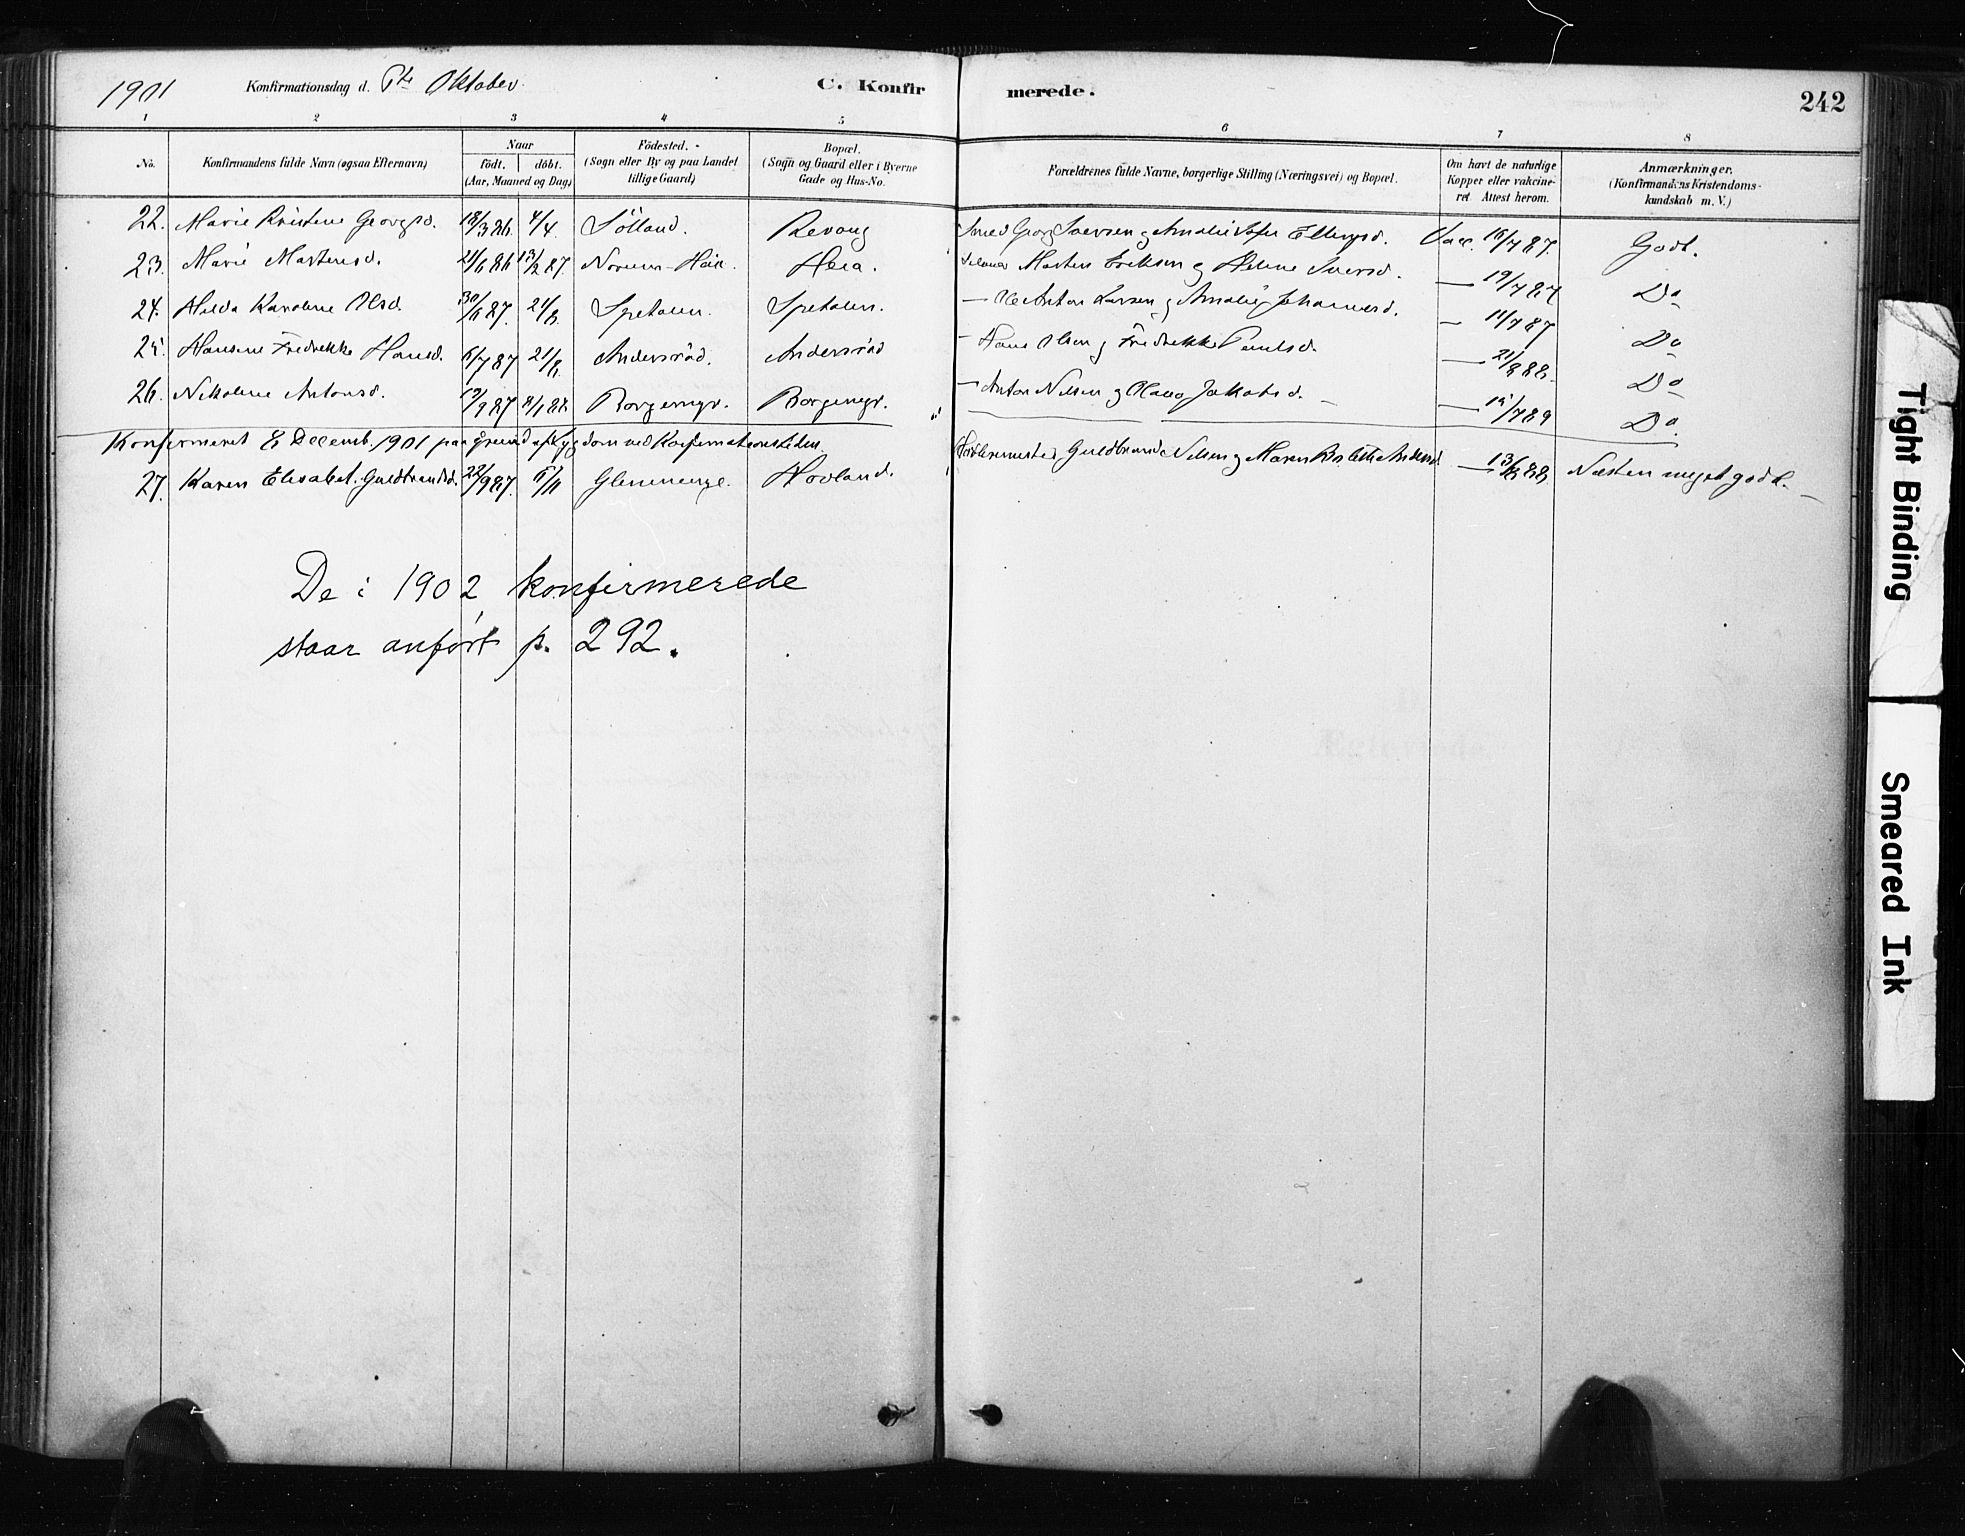 1901 Konfirmationsdag d. Oktober. C. Konfirmerede. 242
1 2 3 4 5 6 7 8
No. Konfirmandens fulde Navn (ogsaa Efternavn) Naar født. døbt. (Aar, Maaned og Dag) Födested. (Sogn eller By og paa Landet tillige Gaard) Bopæl. (Sogn og Gaard eller i Byerne Gade og Hus-No. Forældrenes fulde Navne, borgerlige Stilling (Næringsvei) og Bopæl. Om havt de naturlige Kopper eller vakcineret. Attest herom. Anmærkninger. (Konfirmandens Kristendomskundskab m. V.)
22. Marie Kristine Georgsd. 18/3 86. 4/4. Sölland. Revoug Smed Georg Iversen og Amalie Sofie Ellingsd. Vacc. 16/7 87. Godt.
23. Marie Martensd. 21/6 86 13/2 87. Norum- Heia. Marten Eriksen og Helene Iversd. — 19/7 87 Do
24. Hilda Karoline Olsd. 30/6 87. 21/8. Spetalen. Spetalen. — Ole Anton Larsen og Amalie Johannesd. — 11/7 87 Do
25. Hansine Fredrekke Hansd. 6/7 87 21/8. Andersröd. Andersröd — Hans Olsen og Fredrekke Paulsd. — 21/8 88. Do
26. Nikoline Antonsd. 19/9 87 8/1 88. Borgemyr. Borgemyr. — Anton Nilsen og Olaug Jakobsd. — 15/7 89 Do.
Konfirmeret 8 Decemb. 1901 paa Grund af Sygdom ved Konfirmationstiden.
27. Karen Elisabet Guldbrandsd. 22/9 87. 6/11 Glemmenge. Hovland. Guldbrand Nilsen og Maren Andersd. — 13/8 88 Næsten meget godt.
De i 1902 konfirmerede
staar anført p. 292.
Tight Binding
Smeared Ink